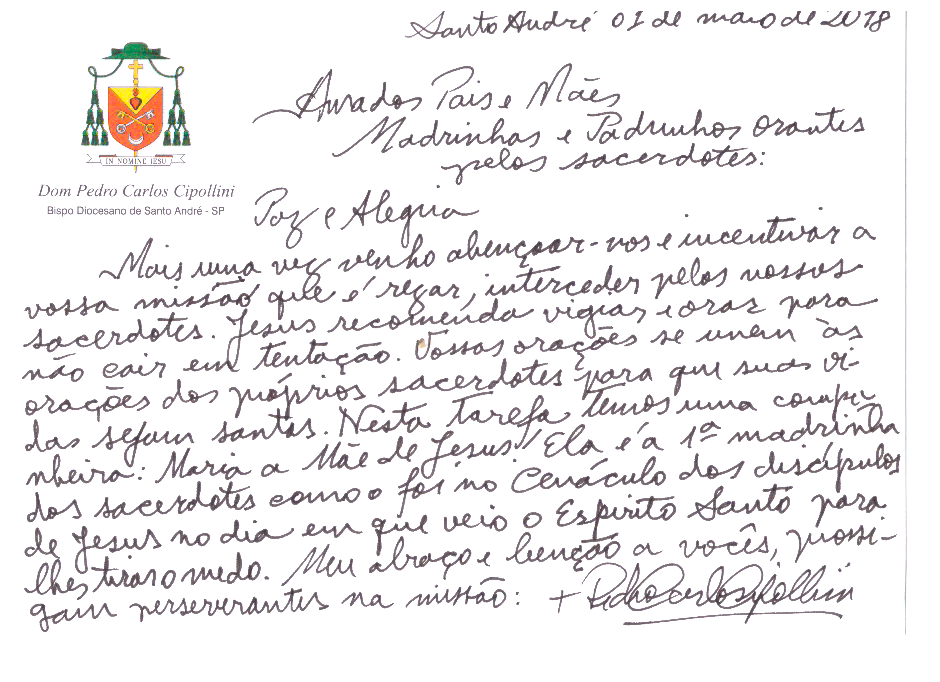 Santo André 01 de maio de 2018
Amados Pais e Mães
Madrinhas e Padrinhos orantes
pelos sacerdotes:
IN NOMINE IESU
Dom Pedro Carlos Cipollini
Bispo Diocesano de Santo André - SP
Paz e Alegria
Mais uma vez venho abençoar-vos e incentivar a
vossa missão que é rezar, interceder pelos nossos
sacerdotes. Jesus recomenda vigiar e orar para
não cair em tentação. Vossas orações se unem às
orações dos próprios sacerdotes para que suas vi-
das sejam santas. Nesta tarefa temos uma compa-
nheira: Maria a Mãe de Jesus! Ela é a 1ª madrinha
dos sacerdotes como o foi no Cenáculo dos discípulos
de Jesus no dia em que veio o Espírito Santo para
lhes tirar o medo. Meu abraço e benção a vocês, prossi-
gam perseverantes na missão: + Pedro Carlos Cipollini